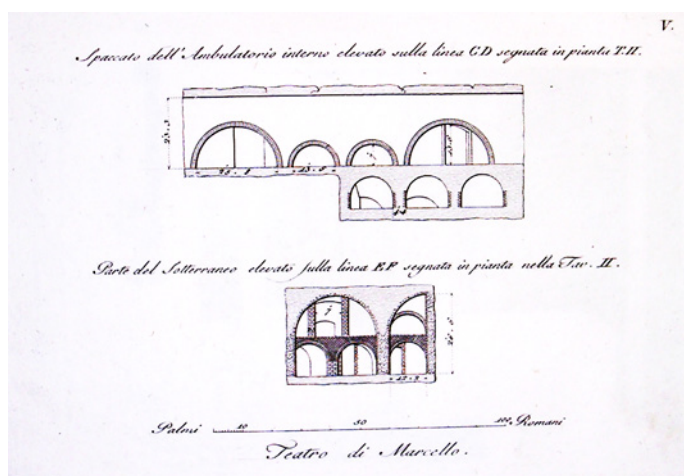 V.
Spaccato dell'Ambulatorio interno elevato sulla linea C D segnata in pianta T. II.
Parte del Sotterraneo elevato sulla linea E F segnata in pianta nella Tav. II.
Palmi 10 50 100 Romani
Teatro di Marcello.